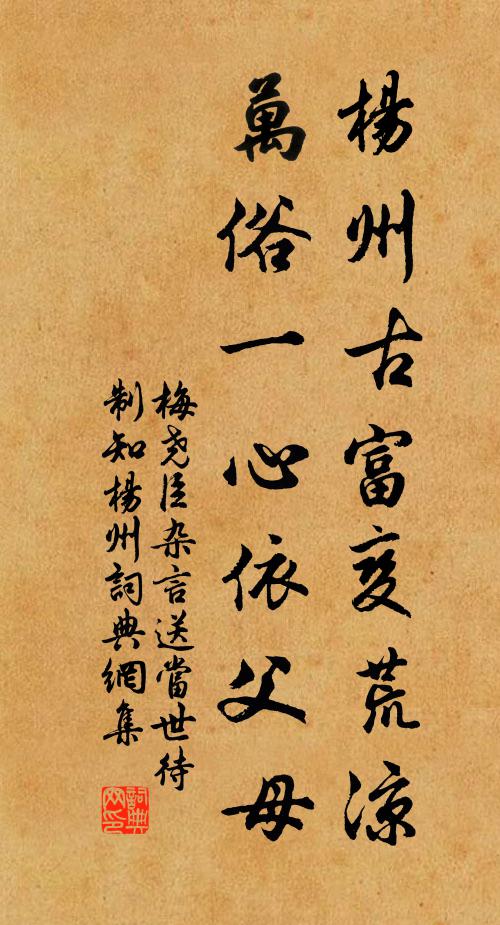 楊州古富变荒涼
萬俗一心依父母
梅尧臣杂言送當世待
制知楊州詞典網集
詞典
网印